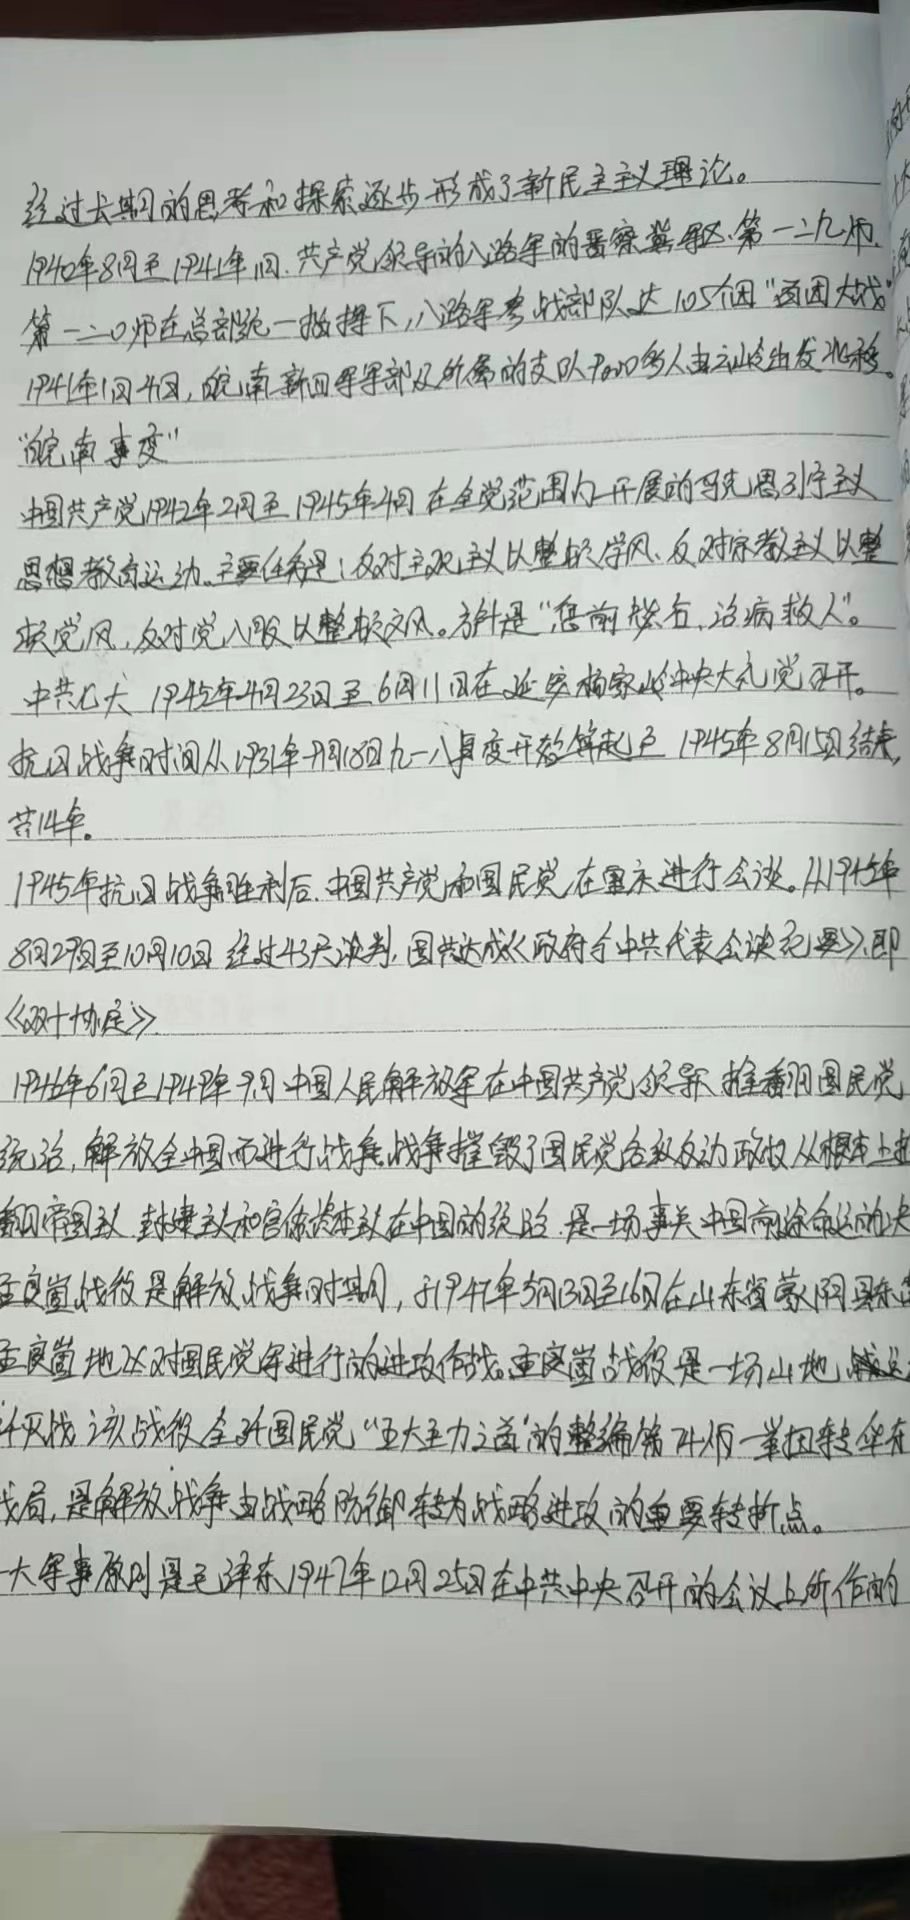 经过长期的思考和探索逐步形成了新民主主义理论。
1940年8月至1941年1月.共产党领导的八路军的晋察冀军区.第一二九师.
第一二〇师在总部统一指挥下,八路军参战部队达105个团"百团大战"
1941年1月4日,皖南新四军军部及所属的支队9000多人由云岭出发北移。
"皖南事变"
中国共产党1942年2月至1945年4月在全党范围内开展的马克思列宁主义
思想教育运动.主要任务是:反对主观主义以整顿学风、反对宗教主义以整
顿党风,反对党八股以整顿文风。方针是"惩前毖后,治病救人"。
中共七大 1945年4月23日至6月11日在延安杨家岭中央大礼堂召开。
抗日战争时间从1931年9月18日九一八事变开始算起至1945年8月15日结束,
共14年。
1945年抗日战争胜利后.中国共产党和国民党在重庆进行会谈。从1945年
8月29日至10月10日经过43天谈判,国共达成《政府与中共代表会谈纪要》,即
《双十协定》
1946年6月至1949年9月中国人民解放军在中国共产党领导推翻国民党
统治,解放全中国而进行战争,战争摧毁了国民党各级反动政权从根本上推
翻帝国主义 封建主义和官僚资本主义在中国的统治.是一场事关中国前途命运的决
孟良崮战役是解放战争时期,于1947年5月13日至16日在山东省蒙阴县东
孟良崮地区对国民党军进行的进攻作战.孟良崮战役是一场山地
歼灭战 该战役全歼国民党"五大主力之首"的整编第74师一举扭转华东
战局,是解放战争由战略防御转为战略进攻的重要转折点。
大军事原则是毛泽东1947年12月25日在中共中央召开的会议上所作的